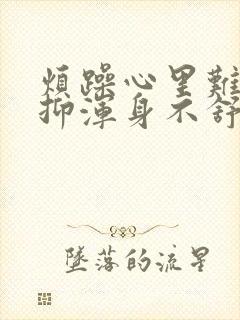 煩躁心里難
抑渾身不舒
墜落的流星